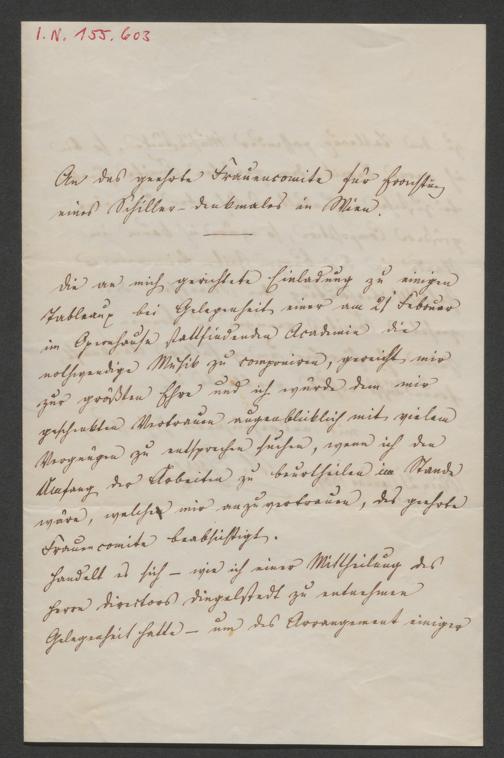 I.N. 155.603
An das geehrte Frauencomite für Errichtung
eines Schiller-Denkmales in Wien.
Die an mich gerichtete Einladung zu einigen
Tableaux bei Gelegenheit einer am 21 Februar
im Opernhause stattfindenden Academie die
nothwendige Musik zu componiren, gereicht mir
zur größten Ehre und ich würde dem mir
geschenkten Vertrauen augenblicklich mit vielem
Vergnügen zu entsprechen suchen, wenn ich den
Umfang der Arbeiten zu beurtheilen im Stande
wäre, welche mir anzuvertrauen, das geehrte
Frauencomite beabsichtigt.
Handelt es sich – wie ich einer Mittheilung des
Herrn Directors Dingelstedt zu entnehmen
Gelegenheit hatte – um das Arrangement einiger